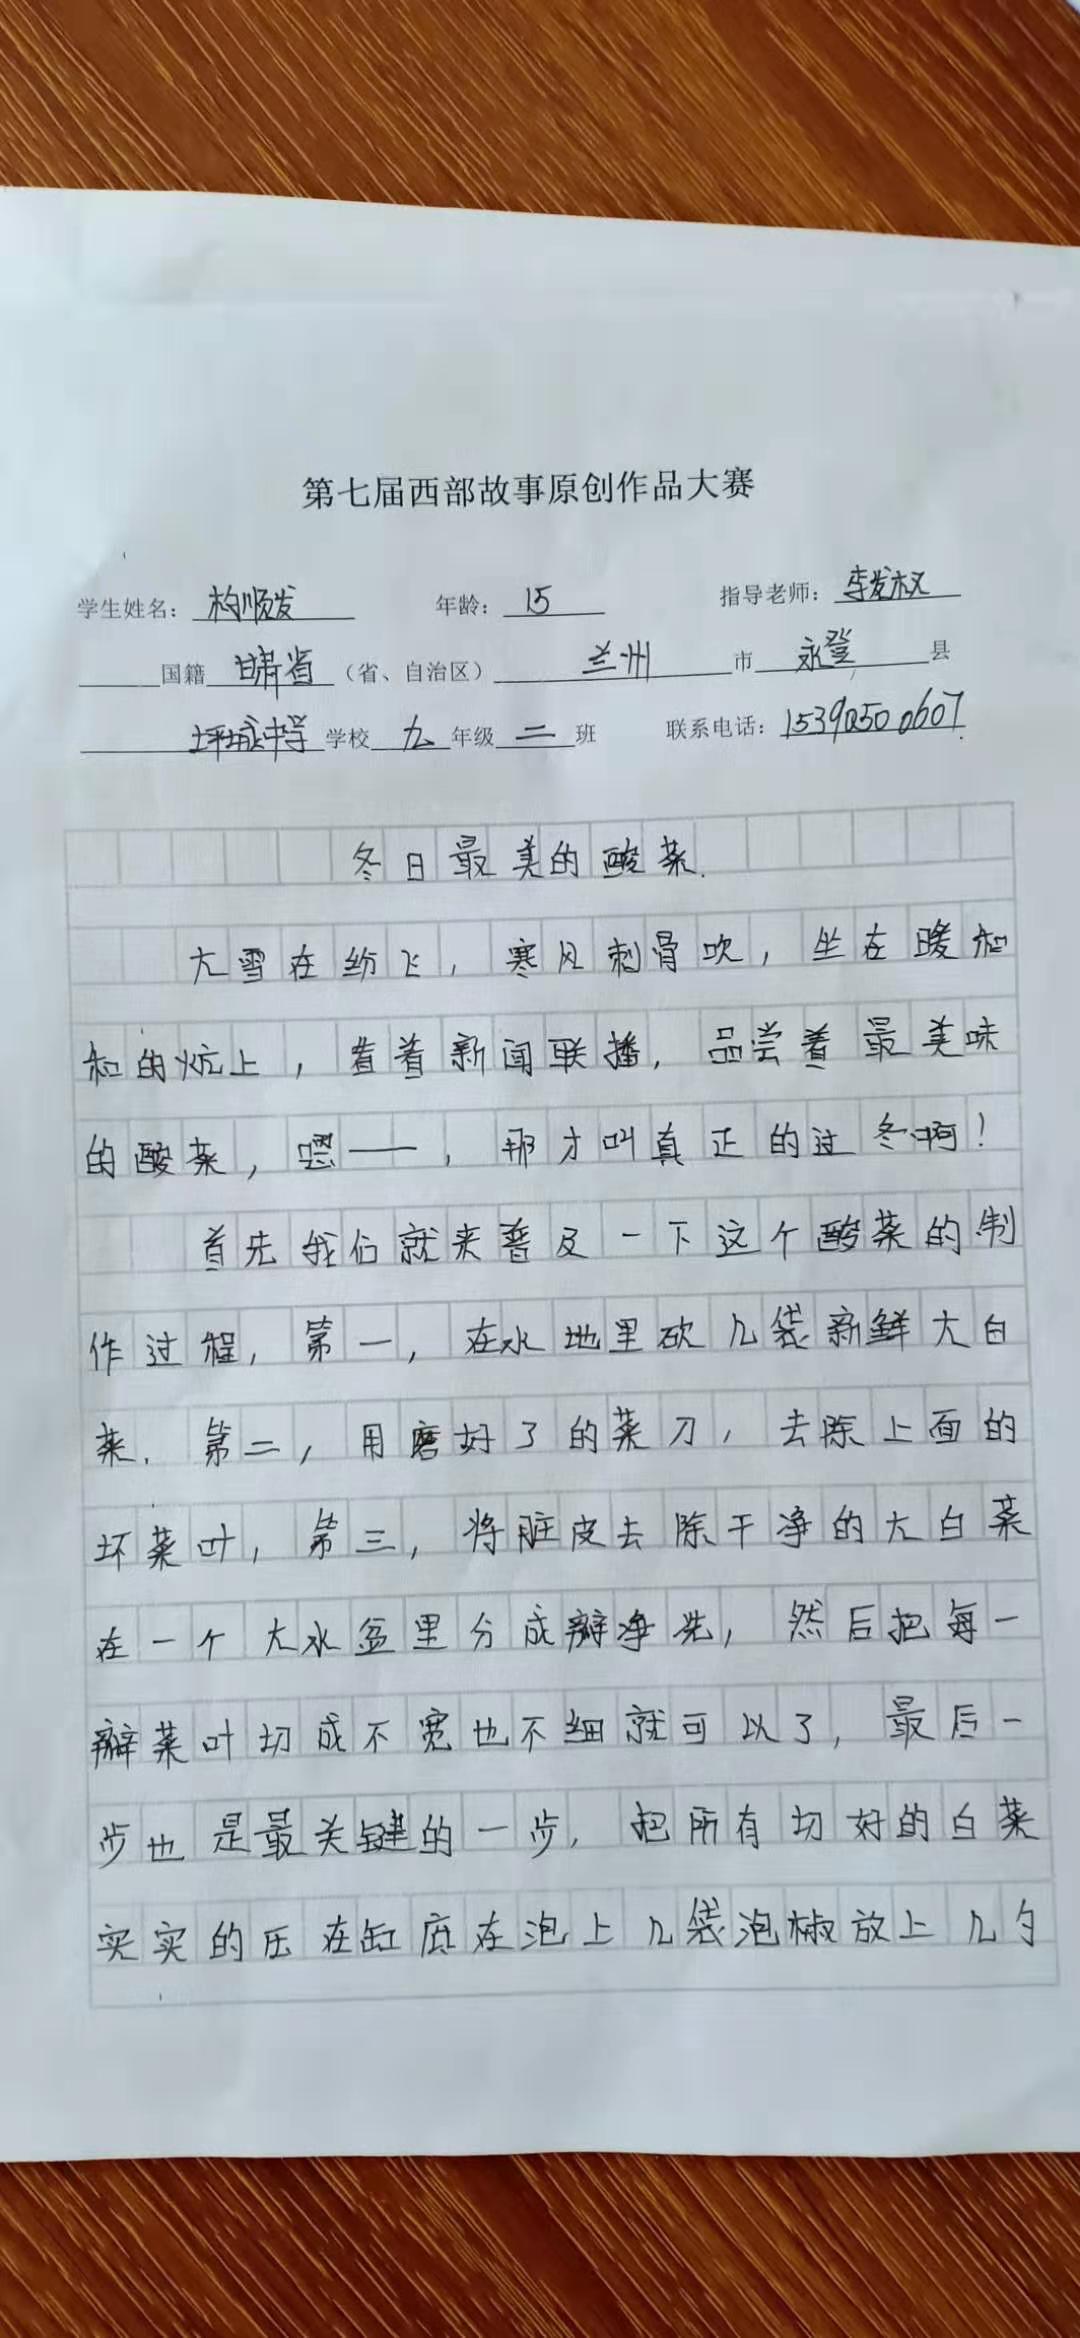 第七届西部故事原创作品大赛
学生姓名：构顺发 年龄：15 指导老师：李发权
国籍 甘肃省（省、自治区）兰州市永登县
坪城中学学校九年级二班 联系电话：15390500607
冬日最美的酸菜.
大雪在纷飞，寒风刺骨吹，坐在暖和
和的炕上，看着新闻联播，品尝着最美味
的酸菜，嗯——，那才叫真正的过冬啊！
首先我们就来普及一下这个酸菜的制
作过程，第一，在水地里砍几袋新鲜大白
菜.第二，用磨好了的菜刀，去除上面的
坏菜叶，第三，将脏皮去除干净的大白菜
在一个大水盆里分成瓣净洗，然后把每一
瓣菜叶切成不宽也不细就可以了，最后一
步也是最关键的一步，把所有切好的白菜
实实的压在缸底在泡上几袋泡椒放上几勺